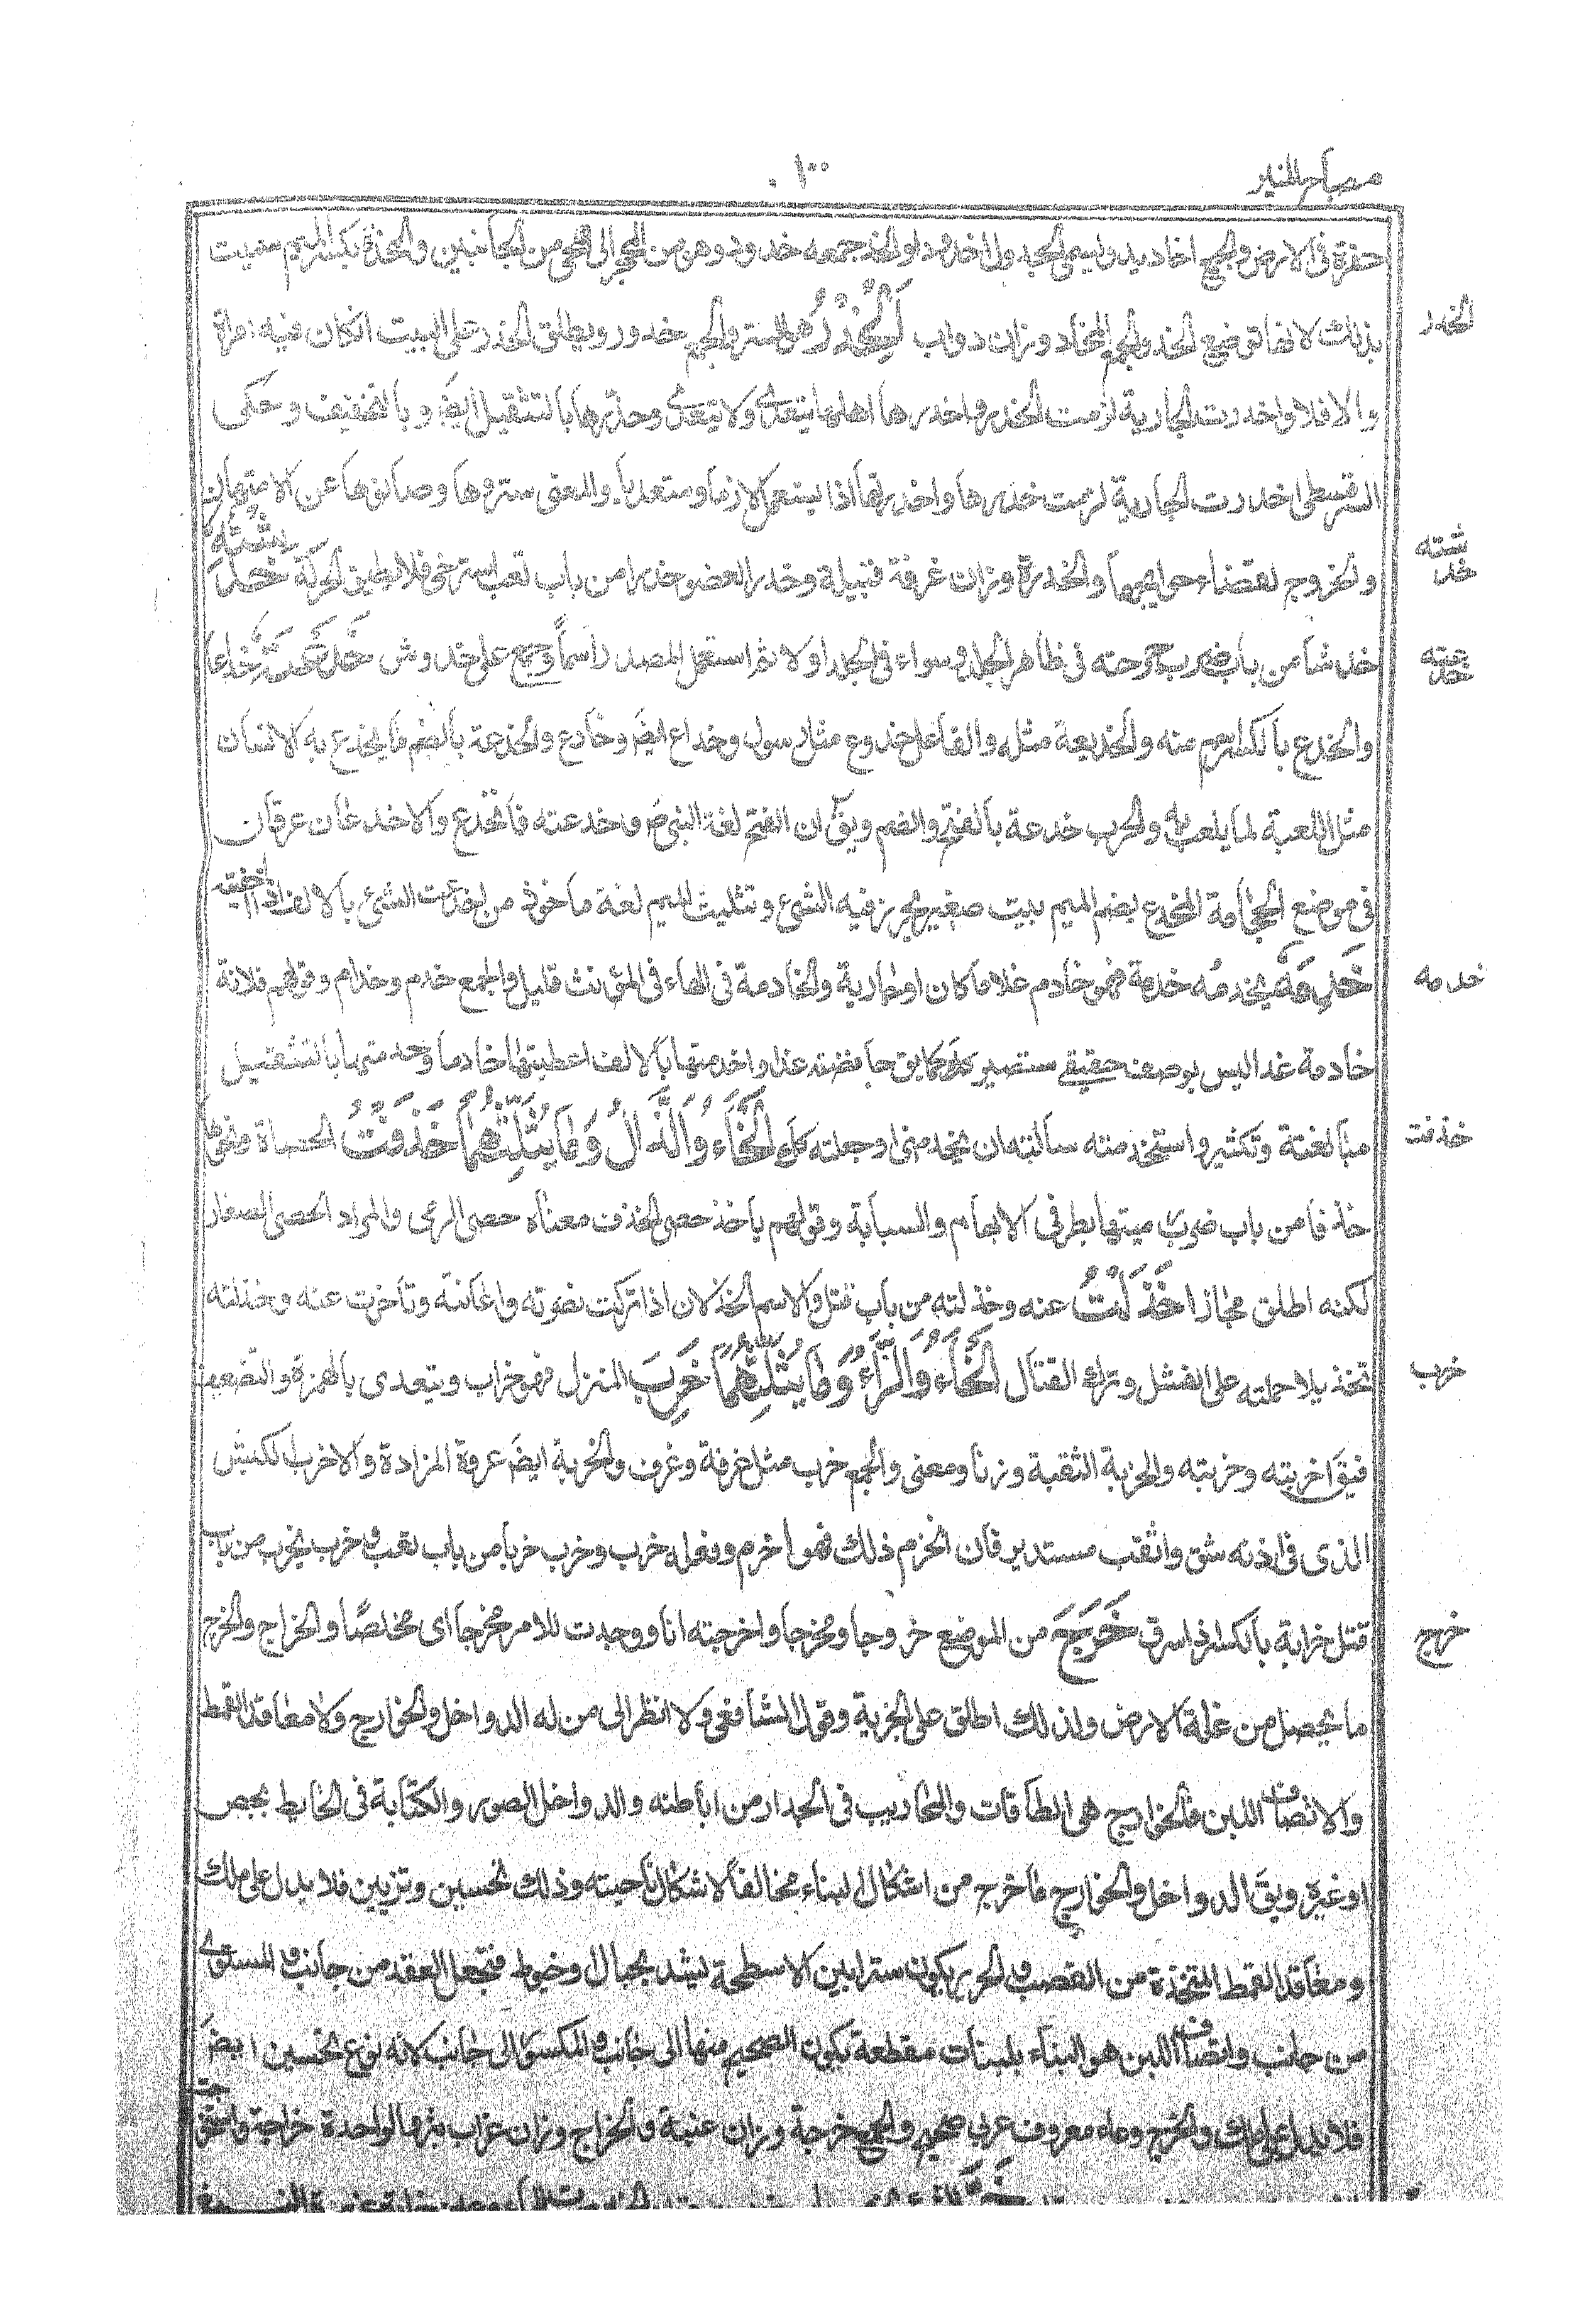 مصباح المنير
١٠٠
حفرة فى الارض والجمع اخاديد ويسمى الجدول اخدودا والخد جمعه خدود وهو من المحجر الى اللحى من الجانبين والمخدة بكسر الميم سميت
الخدر
بذلك لانها توضع الخد والجمع المخاد وزان دواب الخِدْرُ هو الستر والجمع خدور ويطلق الخدر على البيت ان كان فيه امراة
والا فلا واخدرت الجارية لزمت الخدر واخدرها اهلها يتعدى ولا يتعدى وخدّرها بالتثقيل ايضَ وبالتخفيف وحكى
السرقسطى اخدرت الجارية لزمت خدرها واخدرتها اذا يستعمل لازما ومتعديا والمعنى ستروها وصانوها عن الامتهان
والخروج لقضاء حوايجها والخدرة وزان غرفة قبيلة وخدر العضو خدرا من باب تعب استرخى فلا يطيق الحركة خَدَشْتُه
خدشته
خدشا من باب ضرب جرحته فى ظاهر الجلد وسواء دمى الجلد اولا ثم استعمل المصدر اسماً وجمع على خدوش خَدَعْتُه خداعا
خدعته
والخدع بالكسر اسم منه والخديعة مثله والفاعل خدوع مثل رسول وخداع ايضَ وخادع والخدعة بالضم ما يخدع به الانسان
مثل اللعبة لما يلعب به والحرب خدعة بالفتح والضم ويقَ ان الفتح لغة النبى صَ وخدعته فانخدع والاخدعان عرقان
فى موضع الحجامة المخدع بضم الميم بيت صغير يحرز فيه الشئ وتثليث الميم لغة ماخوذ من اخدعت الشئ بالالف اذا اخفيته
خدمه
خَدِمَهُ يخدمُه خدمة فهو خادم غلاما كان او جارية والخادمة فى الهاء فى المؤنث قليل والجمع خدم وخدام وقولهم فلانة
خادمة غدا ليس بوصف حقيقى ستصير كذلك كما يقَ حايضة غدا واخدمتها بالالف اعطيتها خادما وخدمتها بالتثقيل
مبالغة وتكثير واستخدمته سالته ان يخدمنى او جعلته كذلك الْخَاءُ وَالذَّالُ وَمَا يُثَلِّثُهُمَا خَذَفْتُ الحصاة ونحوها
خذفت
خذفا من باب ضرب رميتها بطرفى الابهام والسبابة وقولهم ياخذ حصى الخذف معناه حصى الرمى والمراد الحصى الصغار
لكنه اطلق مجازا خَذَلْتُ عنه وخذلته من باب قتل والاسم الخذلان اذا تركت نصرته واعانته وتاخرت عنه وخذلته
تخذيلا حملته على الفشل وترك القتال الْخَاءُ وَالرَّاءُ وَمَا يُثَلِّثُهُمَا خَرِبَ المنزل فهو خراب ويتعدى بالهمزة والتضعيف
خرب
فيقَ اخربته وخربته والخربة الثقبة وزنا ومعنى والجمع خرب مثل غرفة وغرف والخربة ايضَ عروة المزادة والاخرب الكبش
الذى فى اذنه شق واثقب مستدير فان انخرم ذلك فهو اخرم وفعله خرب وخرب خربا من باب تعب وخرب يخرب من باب
قتل خرابة بالكسر اذا سرق خَرَجَ من الموضع خروجا ومخرجا واخرجته انا ووجدت للامر مخرجا اى مخلصًا والخراج والخرج
خرج
ما يحصل من غلة الارض ولذلك اطلق على الجزية وقول الشافعى ولا انظر الى من له الدواخل والخوارج ولا معاقد القمط
والانصاف اللبن فالخوارج هى الطاقات والمحاريب فى الجدار من اباطنه والدواخل الصور والكتابة فى الحايط بجص
او غيره ويقَ الدواخل والخوارج ما خرج من اشكال البناء مخالفا لاشكال ناحيته وذلك تحسين وتزيين فلا يدل على ملك
ومعاقد القمط المتخذة من القصب والحرير يكون سترا بين الاسطحة ليشد بحبال وخيوط فتجعل العقد من جانب والمستوى
من جانب وانصاف اللبن هو البناء بلبنات مقطعة يكون الصحيح منها الى جانب والمكسور الى جانب لانه نوع تحسين ايضَ
فلا يدل على ملك والخرج وعاء معروف عربى صحيح والجمع خرجة وزان عنبة والخراج وزان غراب بثر الواحدة خراجة واستخرجت